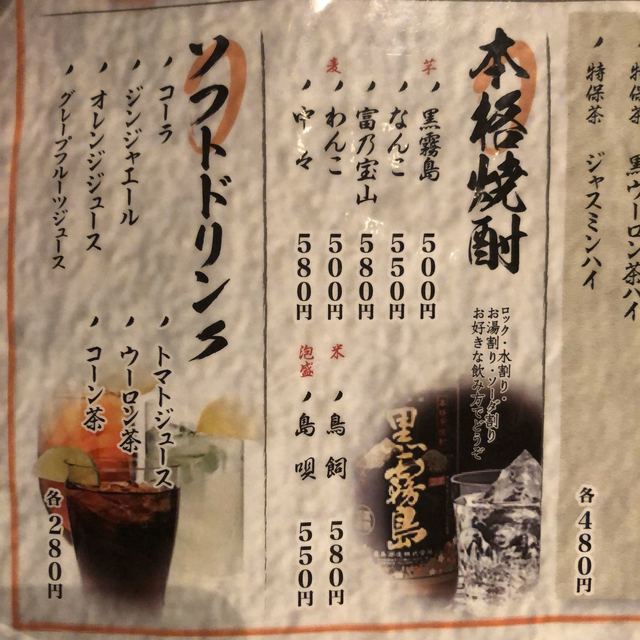 特保茶 黒ウーロン茶ハイ
特保茶 ジャスミンハイ
各480円
本格焼酎
ロック・水割り・
お湯割り・ソーダ割り
お好きな飲み方でどうぞ
芋
黒霧島 500円
なんこ 550円
富乃宝山 580円
麦
わんこ 500円
中々 580円
米
鳥飼 580円
泡盛
島唄 550円
黒霧島
霧島酒造株式会社
ソフトドリンク
コーラ
ジンジャエール
オレンジジュース
グレープフルーツジュース
トマトジュース
ウーロン茶
コーン茶
各280円